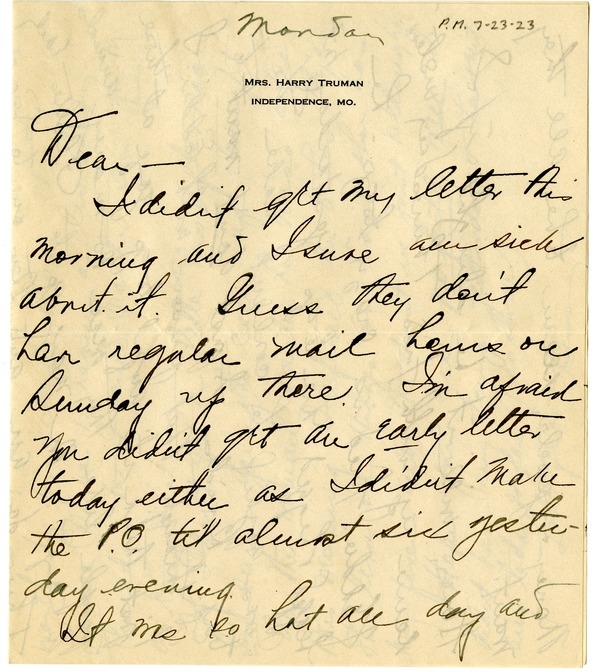 Monday
P.M. 7-23-23
MRS. HARRY TRUMAN
INDEPENDENCE, MO.
Dear —
I didn't get my letter this
morning and I sure am sick
about it. Guess they don't
have regular mail hours on
Sunday up there. I'm afraid
you didn't get an early letter
today either as I didn't make
the P.O. til almost six yester-
day evening.
It was so hot all day and